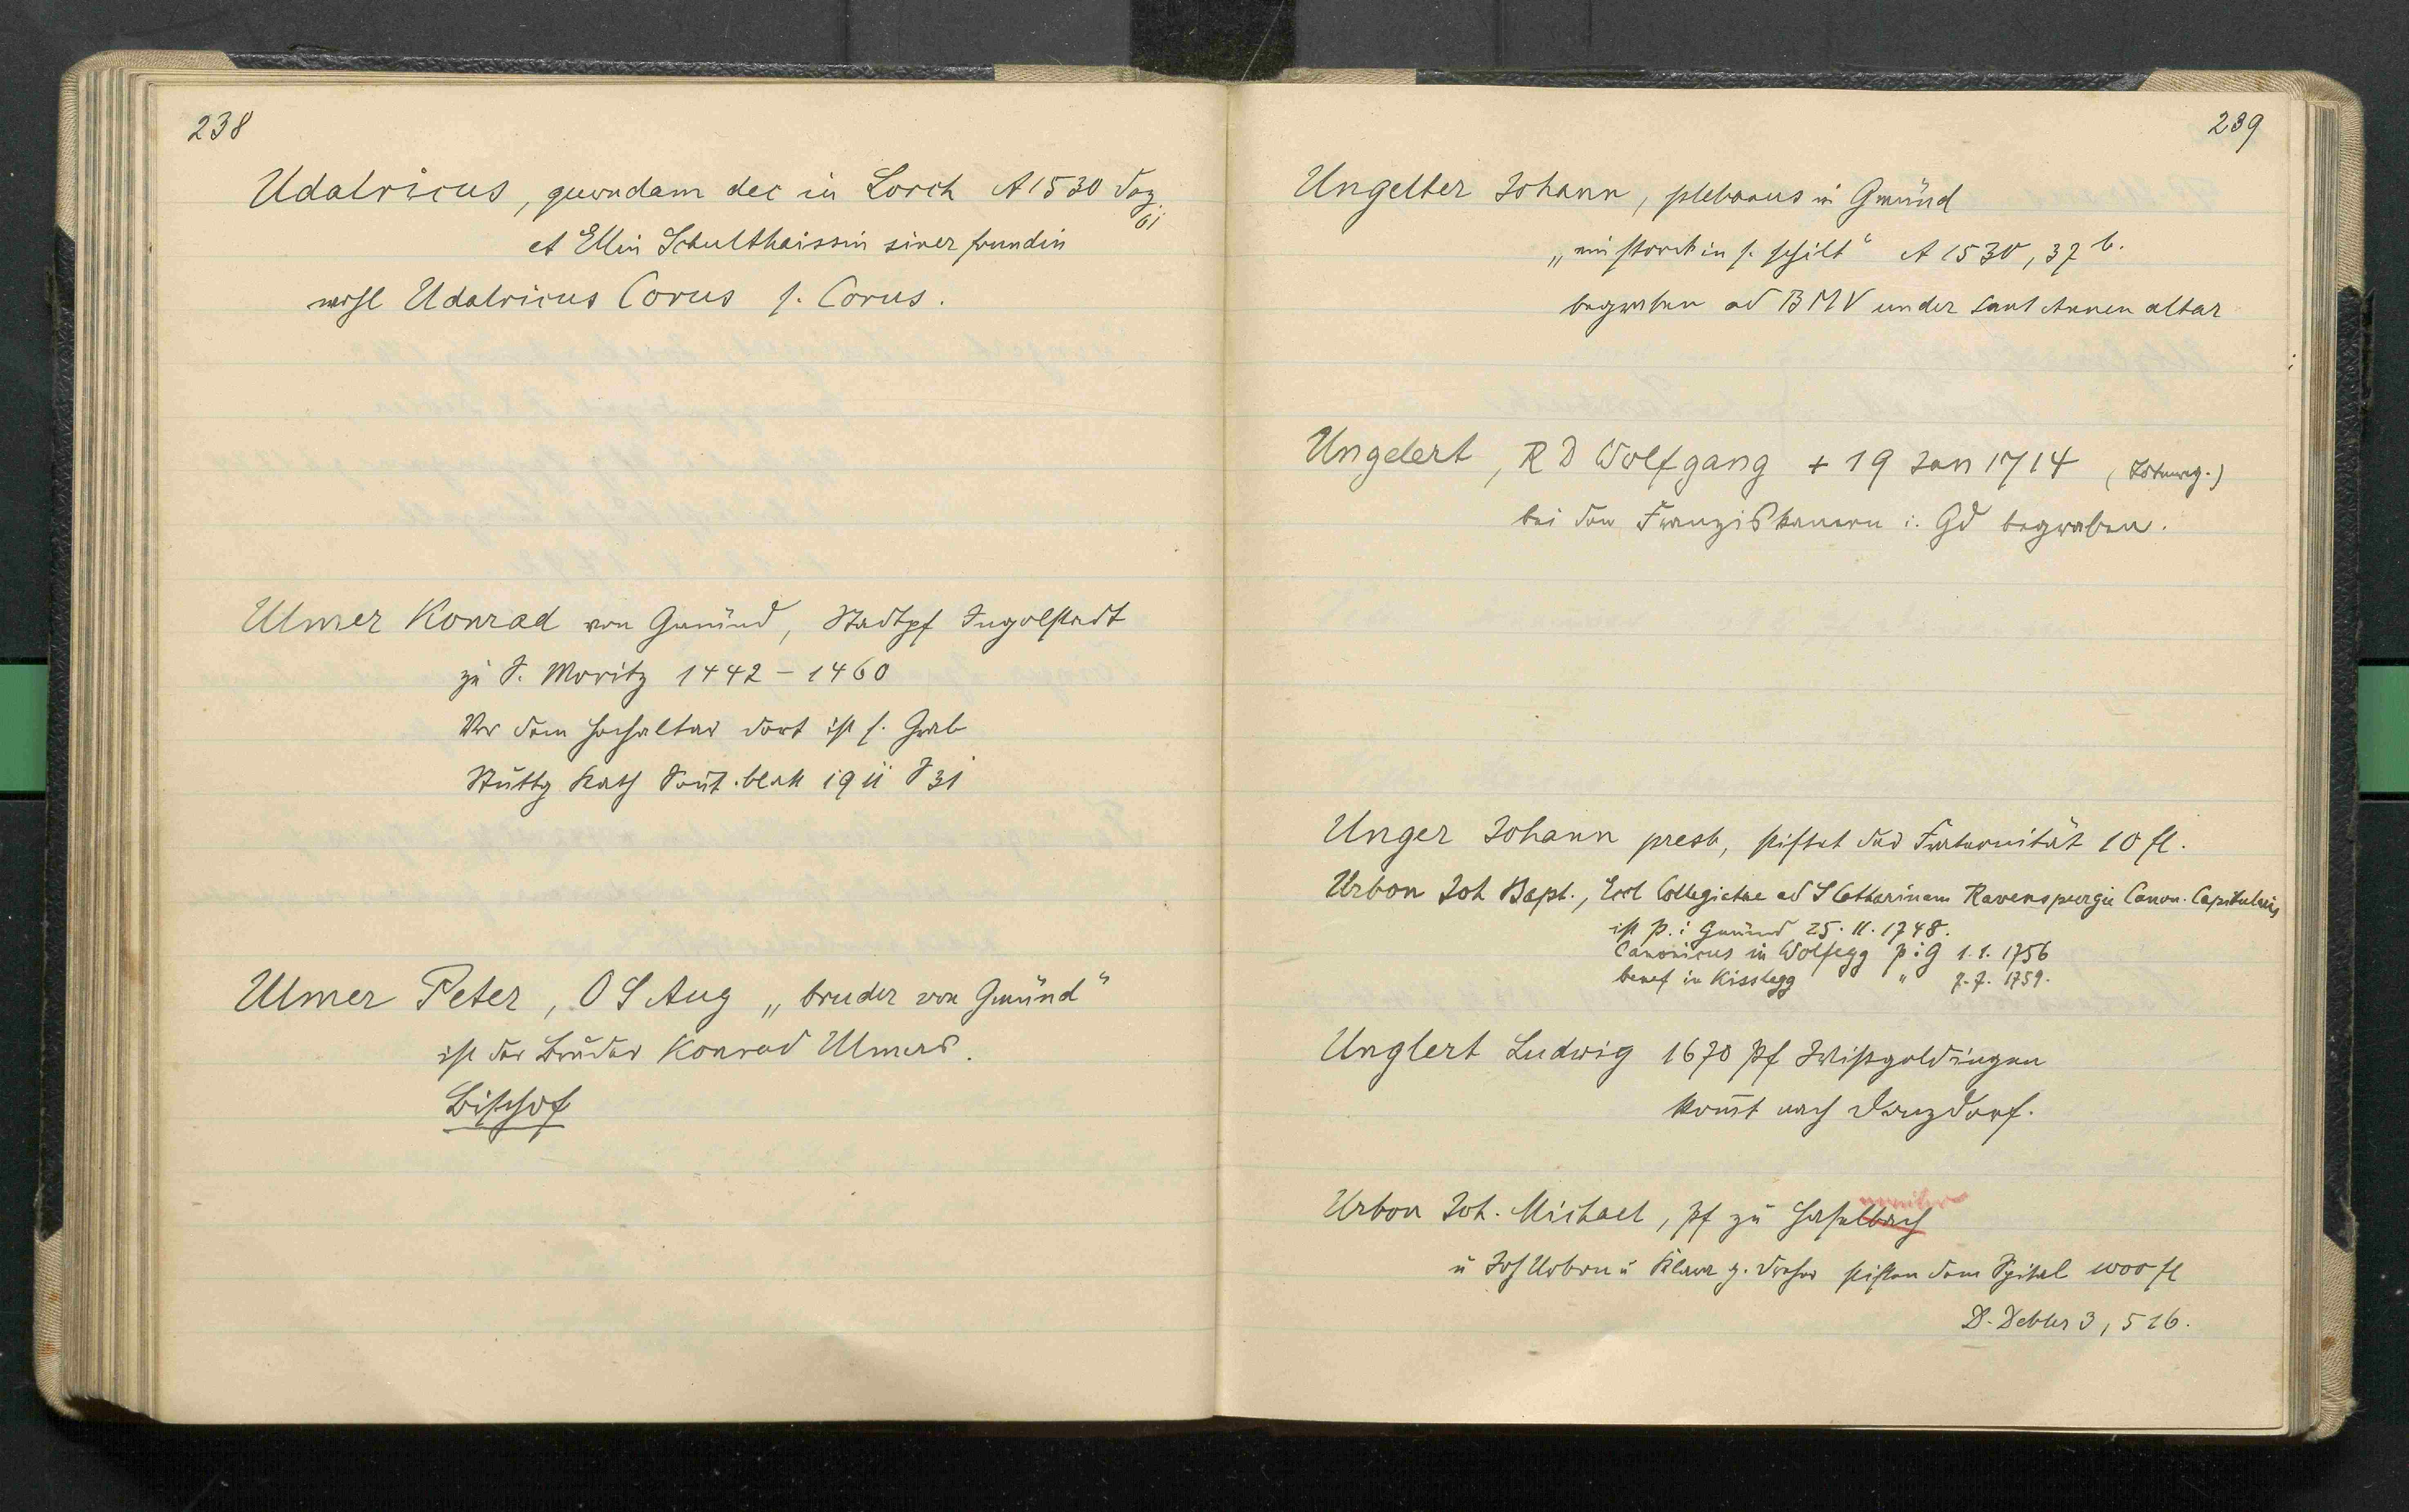 238
Udalricus, quondam dec in Lorch A 1530 Dez
61
et Ellin Schulthaissin siner frundin
wohl Udalricus Corus s. Corus.
Ulmer Konrad von Gmünd, Stadtpf Ingolstadt
zu S. Moritz 1442 - 1460
Vor dem Hochaltar dort ist s. Grab
Stuttg Kath Sont.blatt 1911 S 31
Ulmer Peter, O S Aug „bruder von Gmünd"
ist der Bruder Konrad Ulmers.
Bischof
239
Ungelter Johann, plebanus in Gmünd
„ein storck in s. schilt" A 1530, 37 b.
begraben ad BMV under sant Annen altar
Ungelert, R D Wolfgang + 19 Jan 1714
bei den Franziskanern i. Gd begraben.
Unger Johann presb, stiftet der Fraternität 10 fl.
Urbon Joh Bapt., Eccl Collegiatae ad S Catharinam Ravenspurgii Canon. Capitularis
ist P. i Gmünd 25. 11. 1748.
Canonicus in Wolfegg p i G 1. 1. 1756
benef in Kisslegg " 7. 7. 1759.
Unglert Ludwig 1670 Pf Wißgoldingen
komt nach Donzdorf.
Urbon Joh. Michael, Pf zu Haselbach
weiler
u Jos Urbon u Klara g. Dreher stiften dem Spital 1000 fl
D. Debler 3, 516.